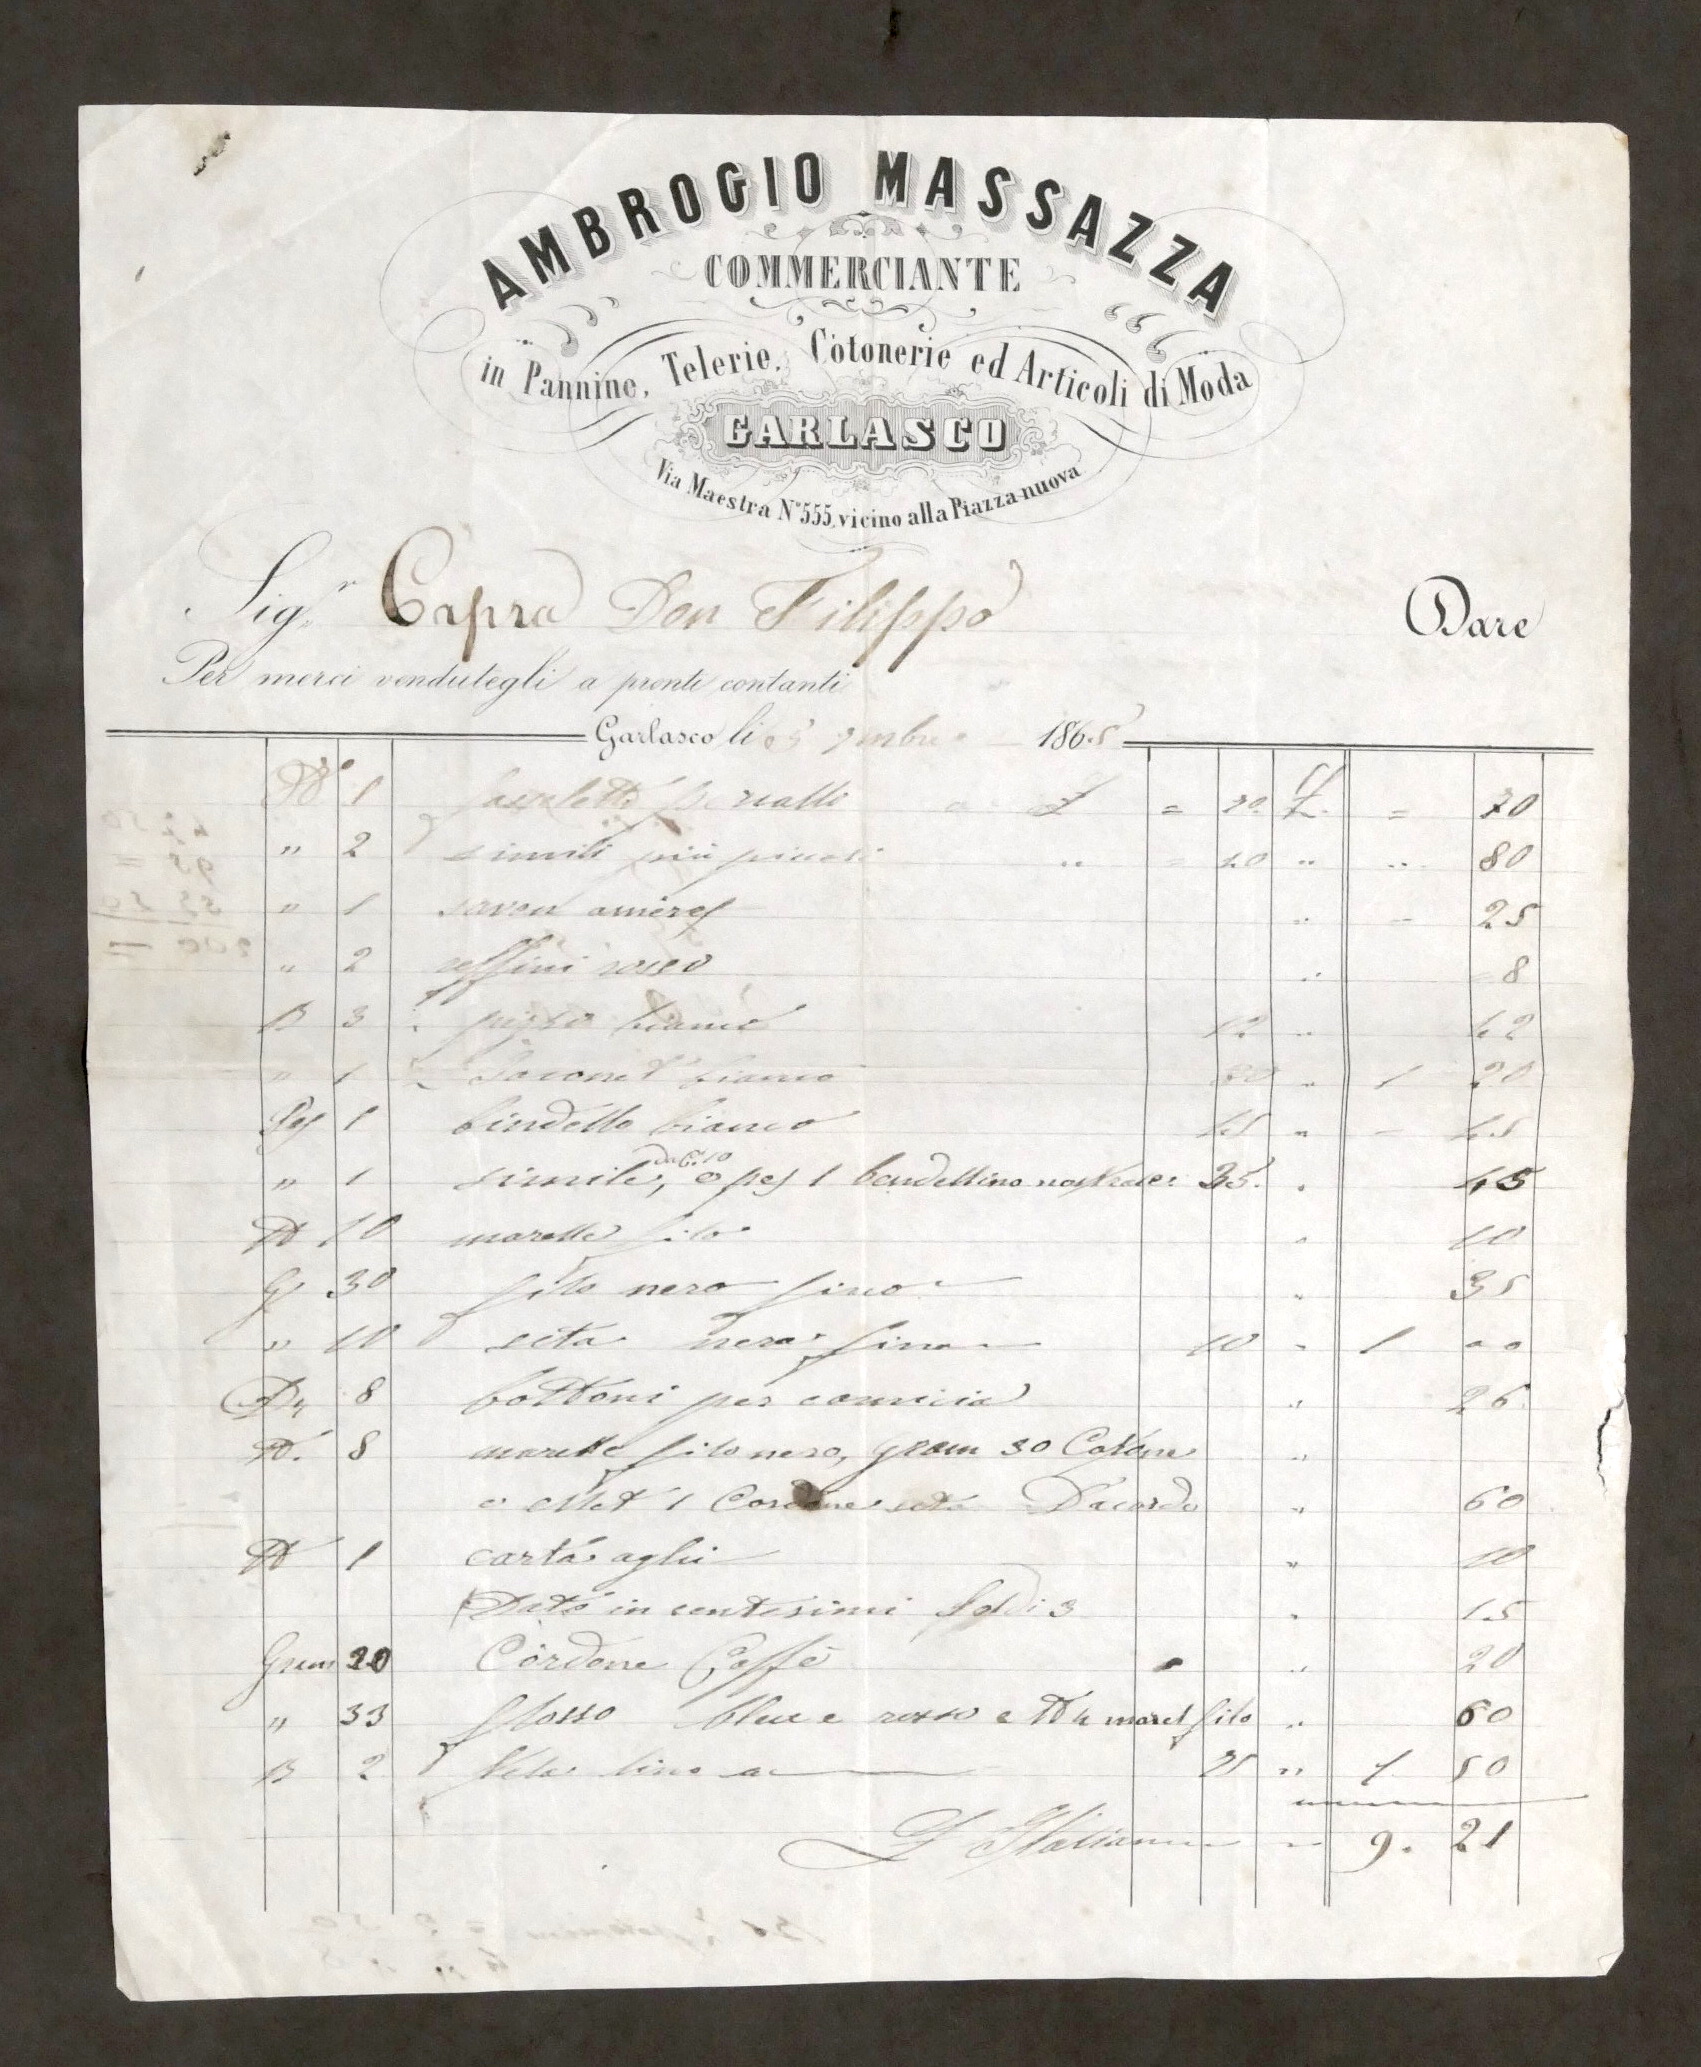 AMBROGIO MASSAZZA
COMMERCIANTE
in Pannine, Telerie, Cotonerie ed Articoli di Moda
GARLASCO
Via Maestra N° 555, vicino alla Piazza nuova
Sig.r Capra Don Filippo Dare
Per merci vendutegli a pronti contanti
Garlasco li 5 9mbre 1865
N° 1 giallo = 20 = 70
" 2 simili più piccoli " = 40 " " 80
" 1 savon " – 25
" 2 " 8
B 3 bianco 12 " 42
" 1 bianco " 1 20
Pes 1 bindello bianco 45 " – 45
" 1 simile, e pes 1 bendellino 35. " 45
N 10 marelle filo " 10
G 30 filo nero fino " 35
" 10 seta nera fina 10 " 1 00
Dn 8 bottoni per camicia " 26
N. 8 marelle filo nero, gram 30 Cotone "
e Met 1 Cordone seta D'acordo " 60
N 1 carta aghi " 10
Dati in centesimi Soldi 3 " 15
Gram 20 Cordone Caffè " 20
" 33 flosso bleu e rosso e N 4 marel filo " 60
B 2 lino a 75 " 1 50
L Italiane " 9. 21